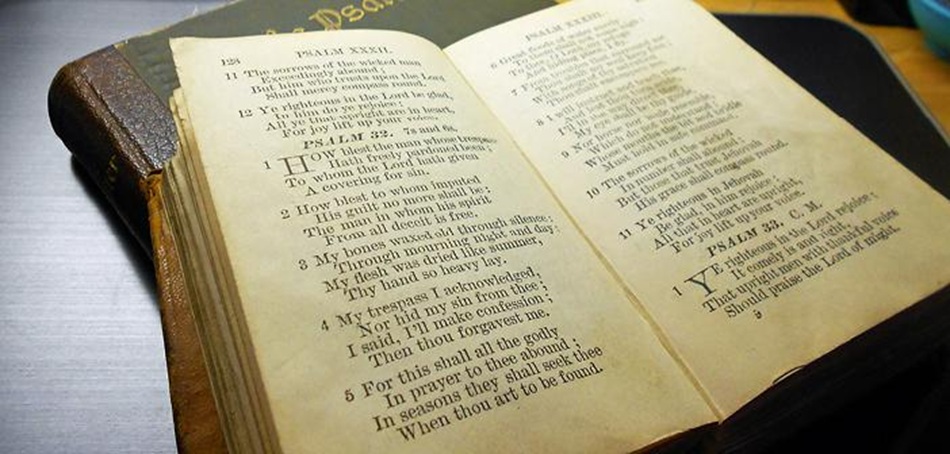 Psal
128
PSALM XXXII.
11 The sorrows of the wicked man
Exceedingly abound;
But him who trusts upon the Lord
Shall mercy compass round.
12 Ye righteous in the Lord be glad,
In him do ye rejoice:
All ye that upright are in heart,
For joy lift up your voice.
PSALM 32. 7s and 6s.
1 HOW blest the man whose trespass
Hath freely pardoned been;
To whom the Lord hath given
A covering for sin.
2 How blest to whom imputed
His guilt no more shall be;
The man in whom his spirit
From all deceit is free.
3 My bones waxed old through silence;
Through mourning night and day:
My flesh was dried like summer,
Thy hand so heavy lay.
4 My trespass I acknowledged,
Nor hid my sin from thee;
I said, I'll make confession;
Then thou forgavest me.
5 For this shall all the godly
In prayer to thee abound;
In seasons they shall seek thee
When thou art to be found.
PSALM XXXIII.
6 Great floods of water
7
With
8 I will
And
I'll
My eye shall
9 Nor horse, nor
Whose
Must hold in
10 The sorrows of the wicked
In number shall abound;
But those that trust Jehovah
His grace shall compass round.
11 Ye righteous in Jehovah
Be glad, in him rejoice;
All that in heart are upright,
For joy lift up your voice.
PSALM 33. C. M.
1 YE righteous in the Lord rejoice;
It comely is and right,
That upright men with thankful voice
Should praise the Lord of might.
9